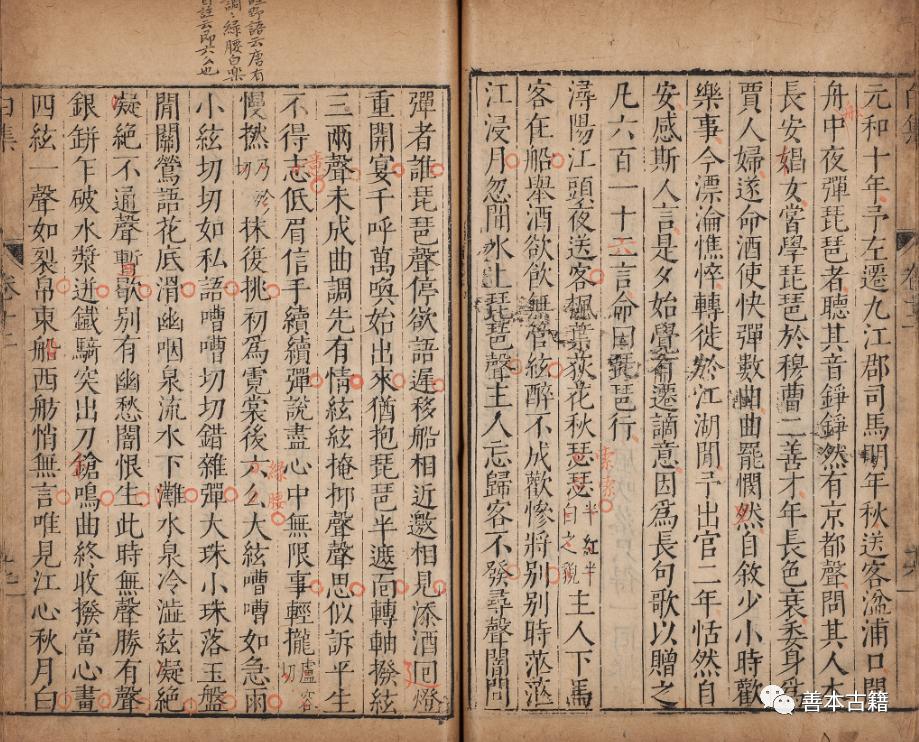 元和十年予左遷九江郡司馬明年秋送客湓浦口聞
舟中夜彈琵琶者聽其音錚錚然有京都聲問其人本
長安娼女嘗學琵琶於穆曹二善才年長色衰委身為
賈人婦遂命酒使快彈數曲曲罷憫然自敘少小時歡
樂事今漂淪憔悴轉徙於江湖間予出官二年恬然自
安感斯人言是夕始覺有遷謫意因為長句歌以贈之
凡六百一十二言命曰琵琶行
潯陽江頭夜送客楓葉荻花秋瑟瑟半紅半白之貌主人下馬
索索
客在船舉酒欲飲無管絃醉不成歡慘將別別時茫茫
江浸月忽聞水上琵琶聲主人忘歸客不發尋聲闇問
野語云唐有
調綠腰白樂
自註云即六么也
彈者誰琵琶聲停欲語遲移船相近邀相見添酒回燈
重開宴千呼萬喚始出來猶抱琵琶半遮面轉軸撥絃
三兩聲未成曲調先有情絃絃掩抑聲聲思似訴平生
不得志低眉信手續續彈說盡心中無限事輕攏盧容切
意
慢撚乃殄切抹復挑初為霓裳後六么大絃嘈嘈如急雨
綠腰
小絃切切如私語嘈嘈切切錯雜彈大珠小珠落玉盤
間關鶯語花底滑幽咽泉流水下灘水泉冷澁絃凝絕
凝絕不通聲暫歇別有幽愁闇恨生此時無聲勝有聲
銀缾乍破水漿迸鐵騎突出刀鎗鳴曲終收撥當心畫
四絃一聲如裂帛東船西舫悄無言唯見江心秋月白
白集
卷十二
善本古籍